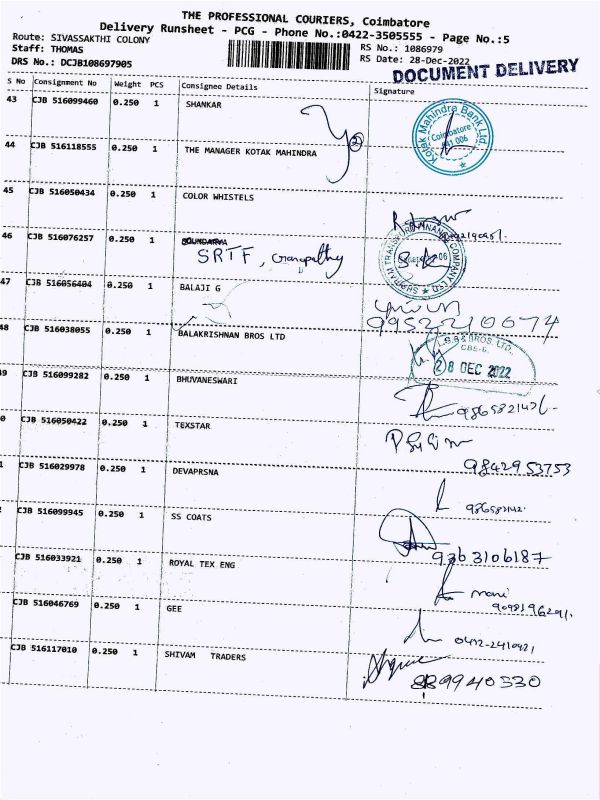 THE PROFESSIONAL COURIERS, Coimbatore
Delivery Runsheet - PCG - Phone No.:0422-3505555 - Page No.:5
Route: SIVASSAKTHI COLONY
Staff: THOMAS
DRS No.: DCJB108697905
RS No.: 1086979
RS Date: 28-Dec-2022
DOCUMENT DELIVERY
S No Consignment No Weight PCS Consignee Details Signature
43 CJB 516099460 0.250 1 SHANKAR
Kotak Mahindra Bank Ltd.
Coimbatore
641 006
44 CJB 516118555 0.250 1 THE MANAGER KOTAK MAHINDRA
2
45 CJB 516050434 0.250 1 COLOR WHISTELS
46 CJB 516076257 0.250 1 SOUNDARYA
SRTF, Ganapathy
SHRIRAM TRANSPORT FINANCE COMPANY LTD.
47 CJB 516056404 0.250 1 BALAJI G
9952210074
48 CJB 516038055 0.250 1 BALAKRISHNAN BROS LTD
L.G.B & BROS. LTD.,
CBE-6.
28 DEC 2022
9 CJB 516099282 0.250 1 BHUVANESWARI
0 CJB 516050422 0.250 1 TEXSTAR
9842953753
1 CJB 516029978 0.250 1 DEVAPRSNA
CJB 516099945 0.250 1 SS COATS
9363106187
CJB 516033921 0.250 1 ROYAL TEX ENG
mani
CJB 516046769 0.250 1 GEE
0422-2410421
CJB 516117010 0.250 1 SHIVAM TRADERS